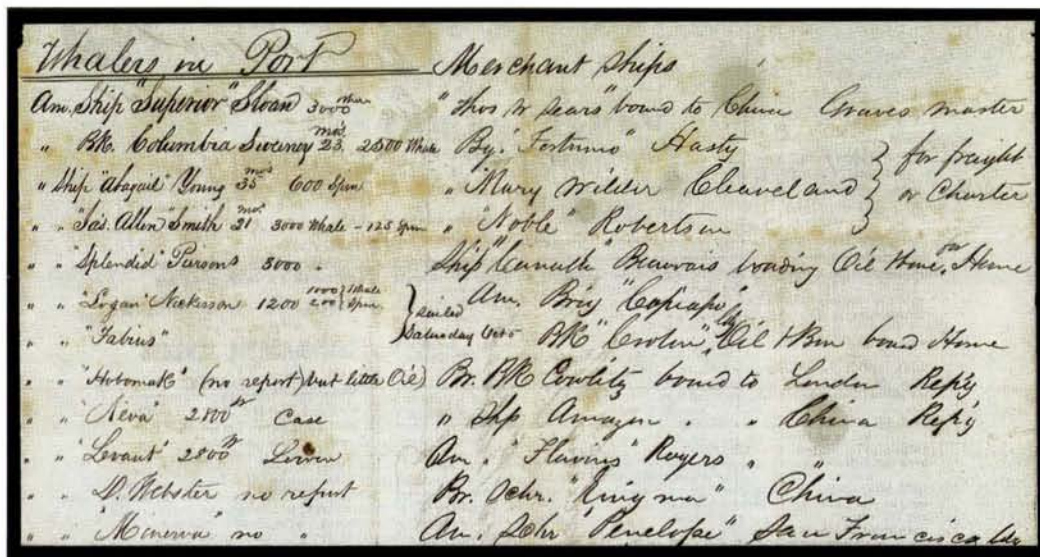 Whalers in Port
Am. Ship "Superior" Sloan 3000 Whale
" Bk. Columbia Sweney 23 mos. 2500 Whale
" Ship "Abagail" Young 35 mos 600 Spm
" " "Jas. Allen" Smith 21 mos. 3000 Whale - 125 Spm
" " "Splendid" Pierson 3000 "
" " "Logan" Nickerson 1200 1000 Whale 200 Spm } Sailed
" " "Fabius" Saturday Oct 5
" " "Hobomak" (no report) but little Oil)
" " "Neva" 2800 W Case
" " "Levant" 2800 W
" " D. Webster no report
" " "Minerva" no "
Merchant Ships
" Thos W Sears" bound to China Graves master
Bg. "Fortunio" Hasty } for freight
" "Mary Wilder Cleaveland } or Charter
" "Noble" Robertson
Ship Beauvais loading Oil for Home
Am. Brig "Copiapo"
Bk " Oil & Bon bound Home
Br. Bk Cowlitz bound to London Rep'g
" Ship Amazon " " China Rep'g
Am. " "Flavius" Rogers " "
Br. Schr. China
Am. Schr "Penelope" San Francisco ldg